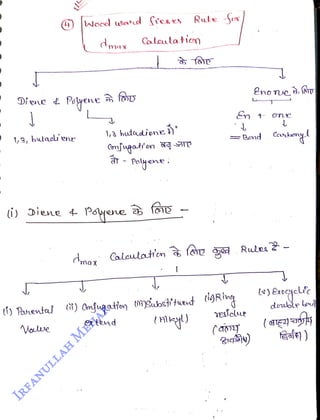 (4) Wood ward fieser Rule for
λmax Calculation
के लिए
Diene & Polyene के लिए
Enone के लिए
1,3, butadiene
1,3 butadiene में
Conjugation बढ़ जाए
तो - Polyene.
En + one
= Bond Carbonyl
(i) Diene & Polyene के लिए -
λmax Calculation के लिए कुछ Rules है -
(i) Parental Value
(ii) Conjugation extend
(iii) Substituent (Alkyl)
(iv) Ring residue
(वलय अवशेष)
(v) Exocyclic double bond
(बाह्य चक्रीय द्विबंध)
IRFANULLAH MENAI